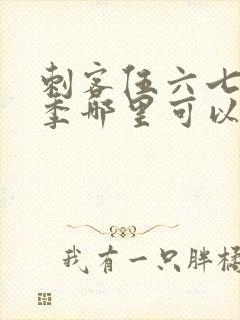 刺客伍六七
季哪里可以
我有一只胖橘